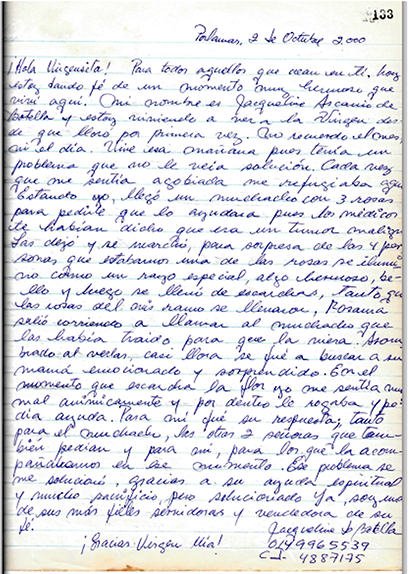 133
Porlamar, 2 de Octubre 2.000
¡Hola Virgencita! Para todos aquellos que crean en Ti, hoy
estoy dando fé de un momento muy hermoso que
viví aquí. Mi nombre es Jacqueline Ascanio de
Batolla y estoy viniendo a ver a la Virgen des
de que lloró por primera vez. No recuerdo el mes,
ni el día. Vine esa mañana pues tenía un
problema que no le veía solución. Cada vez
que me sentía agobiada me refugiaba aquí
Estando yo, llegó un muchacho con 3 rosas
para pedirle que lo ayudara pues los médicos
le habían dicho que era un tumor maligno
Las dejó y se marchó, para sorpresa de las 4 per
sonas que estabamos una de las rosas se iluminó
no como un rayo especial, algo hermoso, be
llo y luego se llenó de escarchas, tanto que
las rosas del otro ramo se llenaron, Rosama
salió corriendo a llamar al muchacho que
las había traido, para que la viera. Asom
brado al verlas, casi llora se fué a buscar a su
mamá emocionado y sorprendido. En el
momento que escardia la flor yo me sentía muy
mal animicamente y por dentro le rogaba y pe
día ayuda. Para mi qué su respuesta, tanto
para el muchacho, las otras 2 señoras que tam
bién pedían y para mí, para los que la acom
pañabamos en ese momento. Ese problema se
me solucionó, gracias a su ayuda espiritual
y mucho sacrificio, pero solucionado ya, soy una
de sus más fieles servidoras y vencedora de su
fé.
Jacqueline d Batolla
¡Gracias Virgen Mía!
0149965539
C.I. 4887175